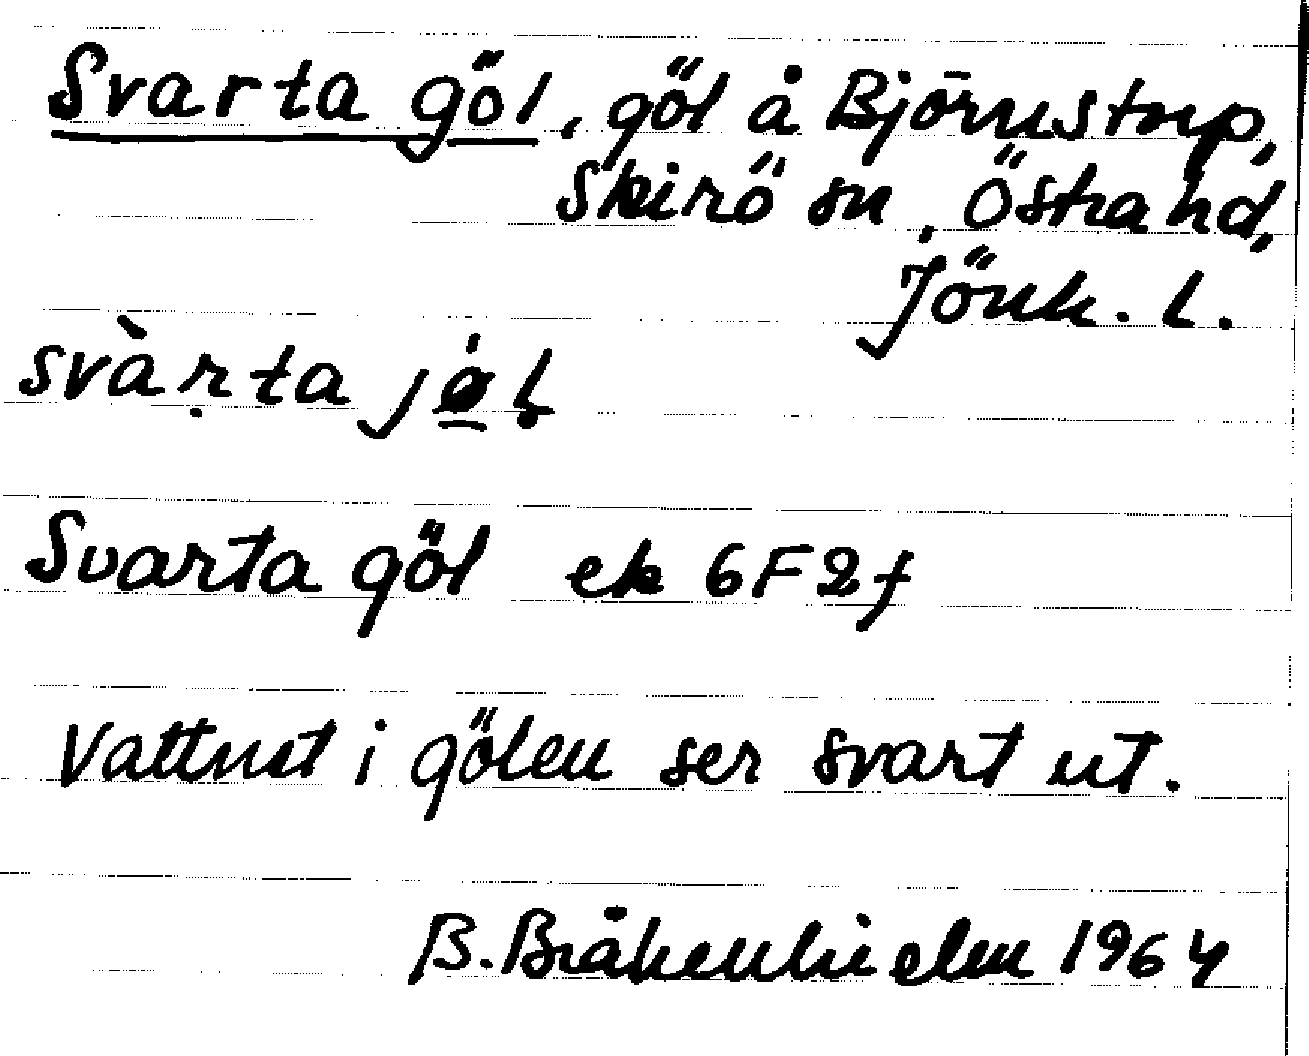 Svarta göl, göl å Björnstorp,
Skirö sn, Östra hd,
Jönk. l.
svàṛta jǿ̲ḷ
Svarta göl ek 6F2f
Vattnet i gölen ser svart ut.
B. Bråkenhielm 1964